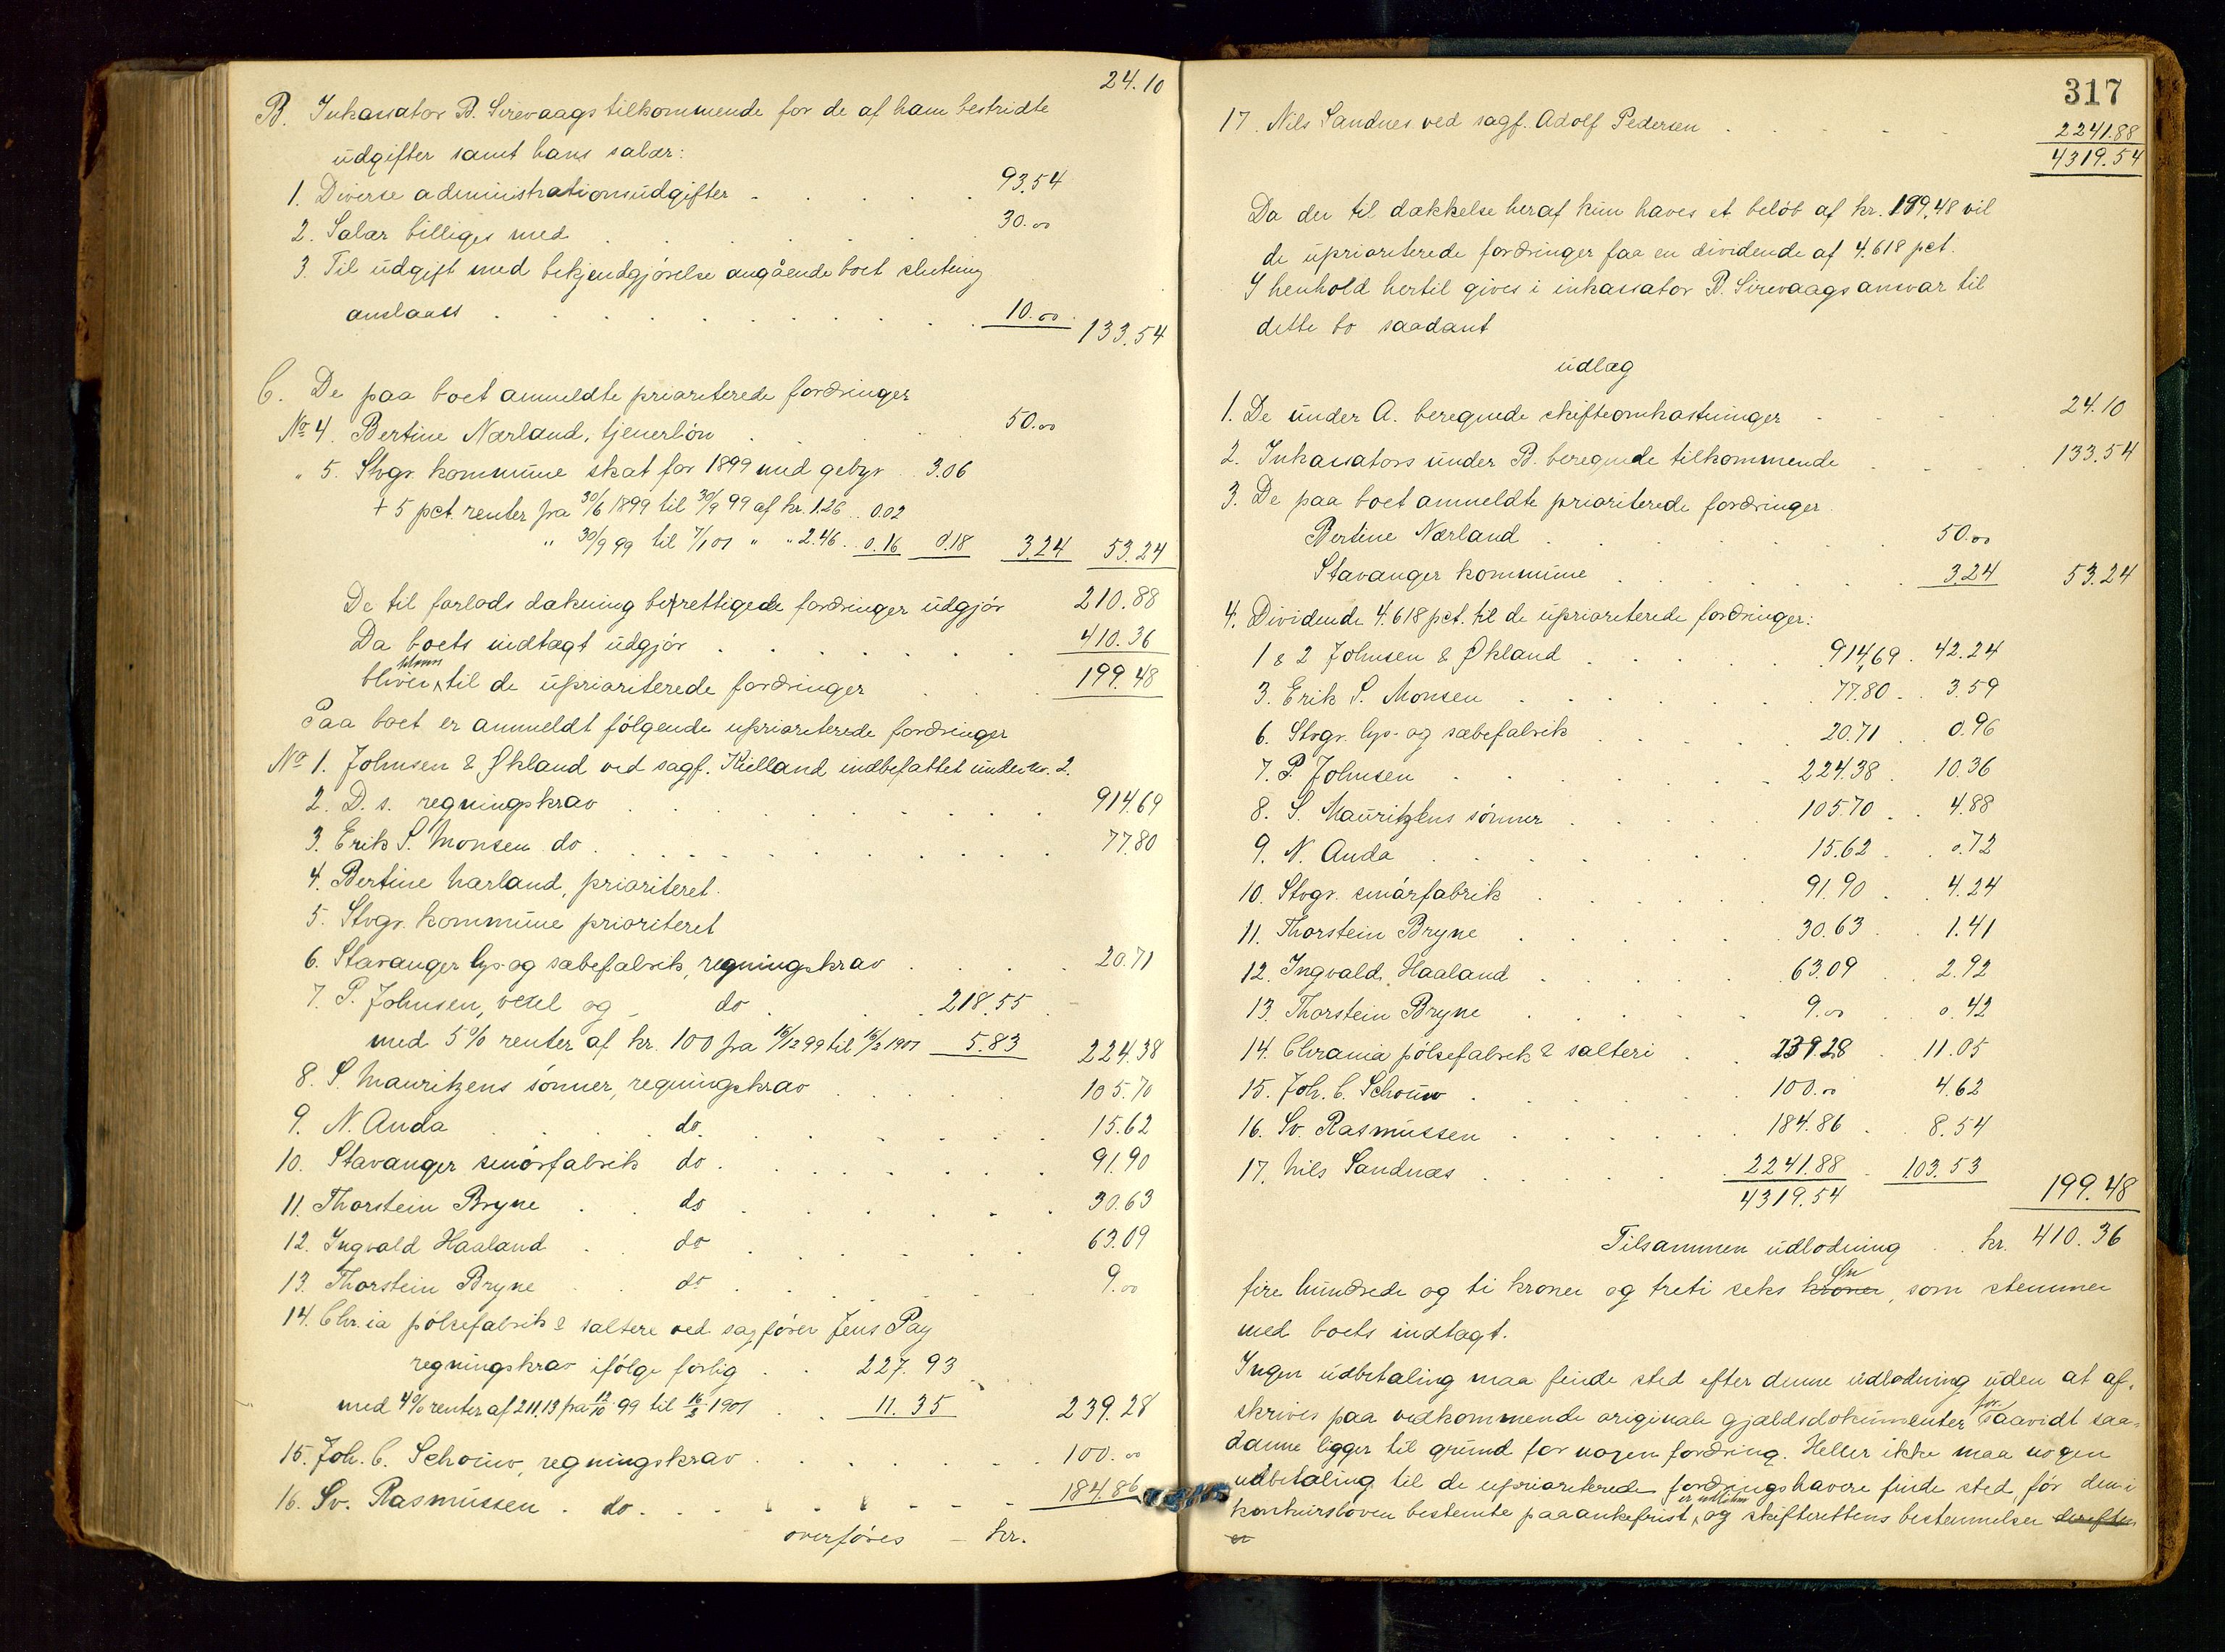 24.10
B. Inkassator B. Sirevaags tilkommende for de af ham bestridte
udgifter samt hans salær:
1. Diverse administrationsudgifter . . . . . 93.54
2. Salær billiges med . . . . . . 30.00
3. Til udgift med bekjendgjørelse angående boet slutning
anslaaes . . . . . . . . . . 10.00 133.54
C. De paa boet anmeldte prioriterede fordringer
No 4. Bertine Nærland, tjenerløn . . . . 50.00
" 5. Stvgr. kommune skat for 1899 med gebyr . 3.06
+ 5 pct. renter fra 30/6 1899 til 30/9 99 af kr. 1.26 .. 0.02
" 30/9 99 til 7/1 01 " " 2.46 .. 0.16 0.18 3.24 53.24
De til forlods dækning berettigede fordringer udgjør 210.88
Da boets indtægt udgjør . . . . . . . 410.36
bliver til de uprioriterede fordringer . . 199.48
Paa boet er anmeldt følgende uprioriterede fordringer
No 1. Johnsen & Økland ved sagf. Kielland indbefattet under no. 2.
2. D. s. regningskrav . . . . . . . 914.69
3. Erik S. Monsen do . . . . . . . . . . 77.80
4. Bertine Nærland, prioriteret.
5. Stvgr. kommune prioriteret
6. Stavanger lys- og sæbefabrik, regningskrav . . . . 20.71
7. P. Johnsen, vexel og do . . . 218.55
med 5% renter af kr. 100 fra 16/12 99 til 16/2 1901 5.83 224.38
8. S. Mauritzens sønner, regningskrav . . . . . 105.70
9. N. Anda . . . . do. . . . . . . . 15.62
10. Stavanger smørfabrik do . . . . . . . . 91.90
11. Thorstein Bryne . . do . . . . . . . 30.63
12. Ingvald Haaland . . do . . . . . . . 63.09
13. Thorstein Bryne . . do . . . . . . . 9.00
14. Chr.ia pølsefabrik & saltere ved sagfører Jens Pay
regningskrav ifølge forlig . . 227.93
med 4% renter af 211.13 fra 13/10 99 til 16/2 1901 . . 11.35 239.28
15. Joh. C. Schouw, regningskrav . . . . . . . 100.00
16. Sv. Rasmussen . do . . . . . . . . 184.86
overføres – kr.
317
17. Nils Sandnes ved sagf. Adolf Pedersen . . . . 2241.88
4319.54
Da der til dækkelse heraf kun haves et beløb af kr. 199.48 vil
de uprioriterede fordringer faa en dividende af 4.618 pct.
I henhold hertil gives i inkassator B. Sirevaags ansvar til
dette bo saadant
udlæg
1. De under A. beregnede skifteomkostninger . . . . 24.10
2. Inkassators under B. beregnede tilkommende . . . . 133.54
3. De paa boet anmeldte prioriterede fordringer.
Bertine Nærland . . . . . . . 50.00
Stavanger kommune . . . . . . . 3.24 53.24
4. Dividende 4.618 pct. til de uprioriterede fordringer:
1 & 2 Johnsen & Økland . . . . . 914,69 . 42.24
3. Erik S. Monsen . . . . . . 77.80 . . 3.59
6. Stvgr. lys- og sæbefabrik . . . . . 20.71 . 0.96
7. P. Johnsen . . . . . . . 224.38 . 10.36
8. S. Mauritzens sønner . . . . . 105.70 . . 4.88
9. N. Anda . . . . . . . 15.62 . . 0.72
10. Stvgr. smørfabrik . . . . . . 91.90 . . 4.24
11. Thorstein Bryne . . . . . . 30.63 . . 1.41
12. Ingvald Haaland . . . . . . 63.09 . 2.92
13. Thorstein Bryne . . . . . 9.00 . 0.42
14. Chrania pølsefabrik & salteri . . 239.28 . 11.05
15. Joh. C. Schouw . . . . . . 100.00 4.62
16. Sv. Rasmussen . . . . . 184.86 . 8.54
17. Nils Sandnæs . . . . . 2241.88 . 103.53
4319.54 199.48
Tilsammen udlodning . . kr. 410.36
fire hundrede og ti kroner og treti seks kroner øre, som stemmer
med boets indtægt.
Ingen udbetaling maa finde sted efter denne udlodning uden at af-
skrives paa vedkommende originale gjældsdokumenter forsaavidt saa-
danne ligger til grund for nogen fordring. Heller ikke maa nogen
udbetaling til de uprioriterede fordringshavere finde sted, før den i
konkursloven bestemte paaankefrist er udløben og skifterettens bestemmelser derefter
er